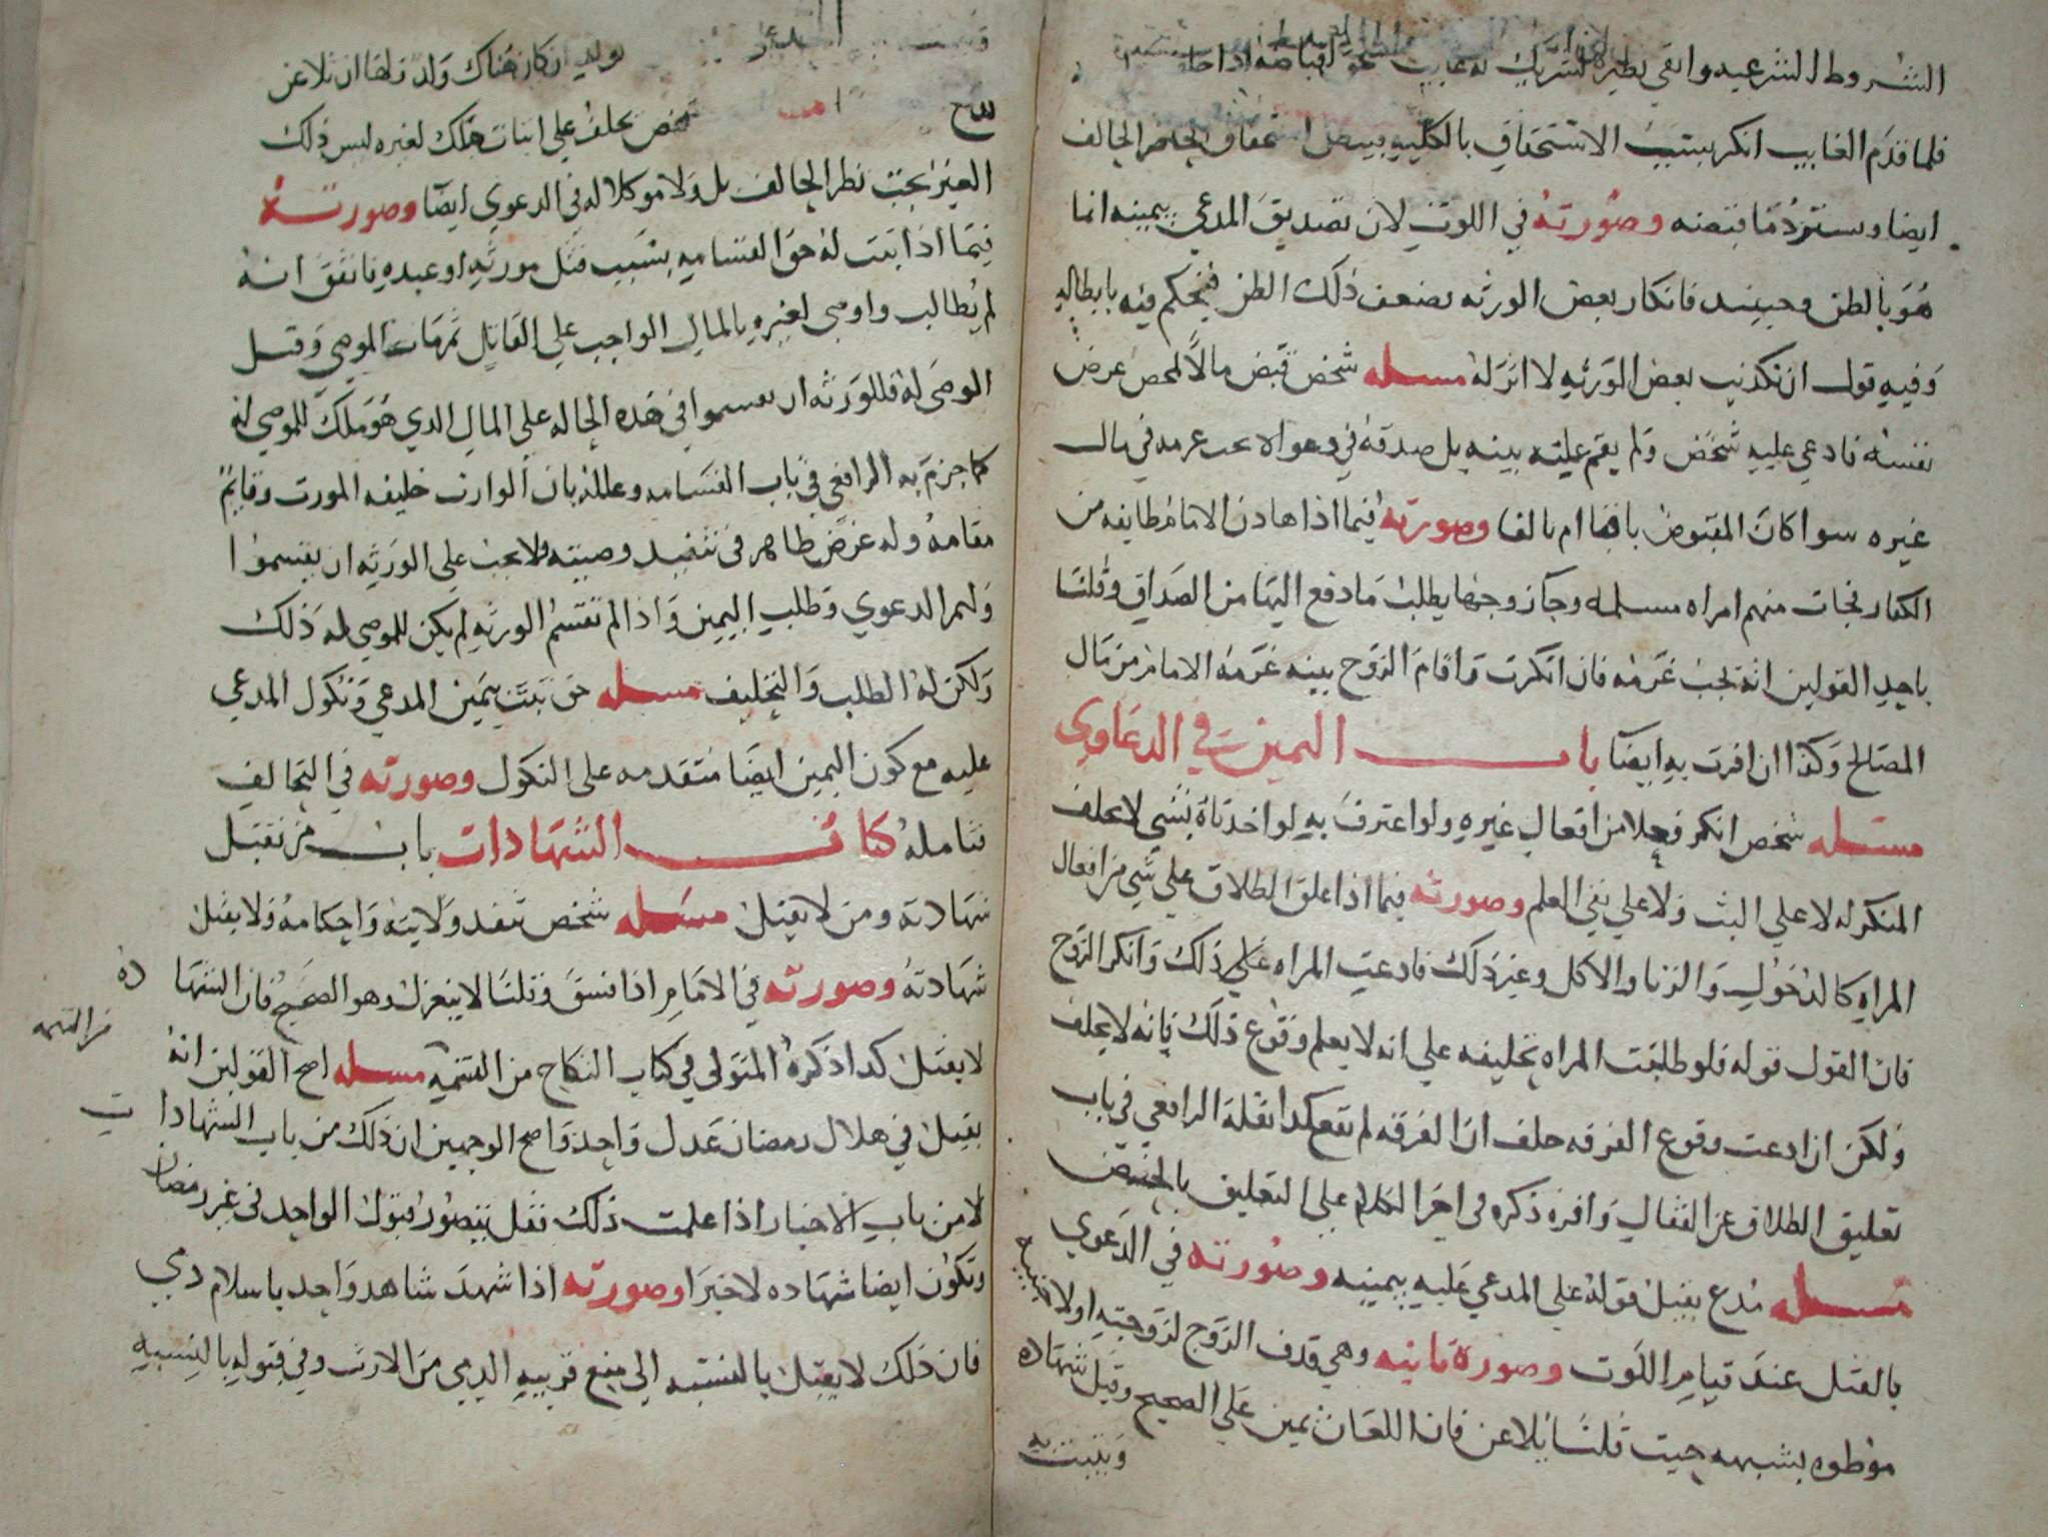 الشروط الشرعيه وابقي نظيره لشريك له غايب نحو اقباضه اذا
فلما قدم الغايب انكر سبب الاستحقاق بالكليه بطل استحقاق الحاضر الحالف
ايضا ويسترد ما قبضه وصورته في اللوث لان تصديق المدعي بيمينه انما
هو بالظن وحينيد فانكار بعض الورثه يضعف ذلك الظن فيحكم فيه بابطاله
وفيه قول ان تكذيب بعض الورثه لا اثر له مسله شخص قبض مالا لمحض غرض
نفسه فادعي عليه شخص ولم يقم عليه بينه بل صدقه في دعواه يجب غرمه في مال
غيره سوا كان المقبوض باقيا ام تالفا وصورته فيما اذا هادن الامام طايفه من
الكفار فجات منهم امراه مسلمه وجا زوجها يطلب ما دفع اليها من الصداق وقلنا
باحد القولين انه يجب غرمه فان انكرت واقام الزوج بينه غرمه الامام من مال
المصالح وكذا ان اقرت به ايضا باب اليمين في الدعاوي
مسله شخص انكر فعلا من افعال غيره ولو اعترف به لواخذناه بشي لا يحلف
المنكر له لا علي البت ولا علي نفي العلم وصورته فيما اذا علق الطلاق علي شي من افعال
المراه كالدخول والزنا والاكل وغير ذلك فادعت المراه علي ذلك وانكر الزوج
فان القول قوله فلو طلبت المراه تحليفه علي انه لا يعلم وقوع ذلك فانه لا يحلف
ولكن ان ادعت وقوع الفرقه حلف ان الفرقه لم تقع كدا نقله الرافعي في باب
تعليق الطلاق عن القفال واقره ذكره في اخر الكلام علي التعليق بالحيض
مسله مدع يقبل قوله علي المدعي عليه بيمينه وصورته في الدعوي
بالقتل عند قيام اللوث وصورة ثانيه وهي قدف الزوج لزوجته اولا جنبيه
موطوه بشبهه حيت قلنا يلاعن فان اللعان يمين علي الصحيح وقيل شهاده
ويثبت به
ولد ان كان هناك ولد ولها ان تلاعن
شخص يحلف علي اثبات ملك لغيره ليس ذلك
الغير تحت نظر الحالف بل ولا موكلا له في الدعوي ايضا وصورته
فيما اذا ثبت له حق القسامه بسبب قتل مورثه او عبده فاتفق انه
لم يطالب واوصي لغيره بالمال الواجب علي القاتل ثم مات الموصي وقبل
الوصي له فللورثه ان يقسموا في هده الحاله علي المال الدي هو ملك للموصي له
كما جزم به الرافعي في باب القسامه وعلله بان الوارث خليفه المورث وقايم
مقامه وله غرض ظاهر في تنفيد وصيته ولا يجب علي الورثه ان يقسموا
ولهم الدعوي وطلب اليمين واذا لم تقسم الورثه لم يكن للموصي له ذلك
ولكن له الطلب والتحليف مسله حق ثبت بيمين المدعي ونكول المدعي
عليه مع كون اليمين ايضا متقدمه علي النكول وصورته في التحالف
فتامله كتاب الشهادات باب من تقبل
شهادته ومن لا يقبل مسله شخص تنفد ولايته واحكامه ولا يقبل
شهادته وصورته في الامام اذا فسق وقلنا لا ينعزل وهو الصحيح فان الشهاده
لا يقبل كدا ذكره المتولي في كتاب النكاح من التتمه مسله اصح القولين انه
من التتمه
يقبل في هلال رمضان عدل واحد واصح الوجهين ان ذلك من باب الشهادات
لا من باب الاخبار اذا علمت ذلك فقل يتصور قبول الواحد في غير رمضان
وتكون ايضا شهاده لا خبرا وصورته اذا شهد شاهد واحد باسلام دمي
فان ذلك لا يقبل بالنسبه الي منع قريبه الدمي من الارث وفي قبوله بالنسبه